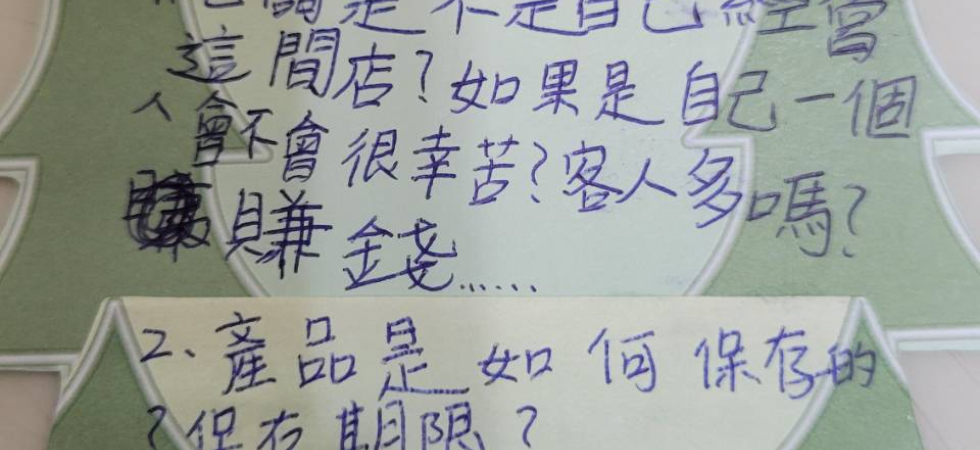 是不是自己經營
這間店?如果是自己一個
人會不會很幸苦?客人多嗎?
賺錢......
2、產品是如何保存的
?保存期限?